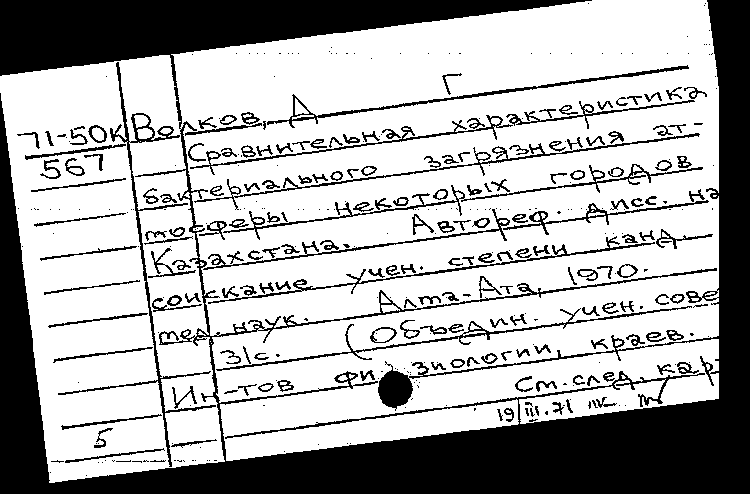 71-50К Волков, Д Г
567 Сравнительная характеристика
бактериального загрязнения ат-
мосферы некоторых городов
Казахстана. Автореф. дисс. на
соискание учен. степени канд.
мед. наук. Алма-Ата, 1970.
31с. (Объедин. учен. сове
Ин-тов физиологии, краев.
См. след. кар
5 19/III.71